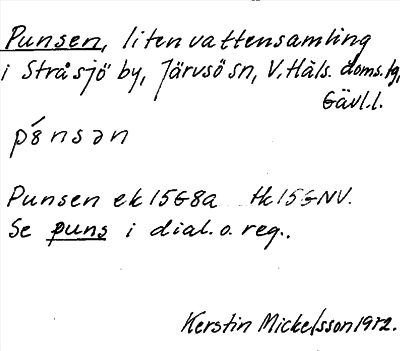 Punsen, liten vattensamling
i Stråsjö by, Järvsö sn, V. Häls. doms.lg,
Gävl.l.
pȣ́nsən
Punsen ek 15G8a Hk 15GNV.
Se puns i dial.o.reg..
Kerstin Mickelsson 1972.